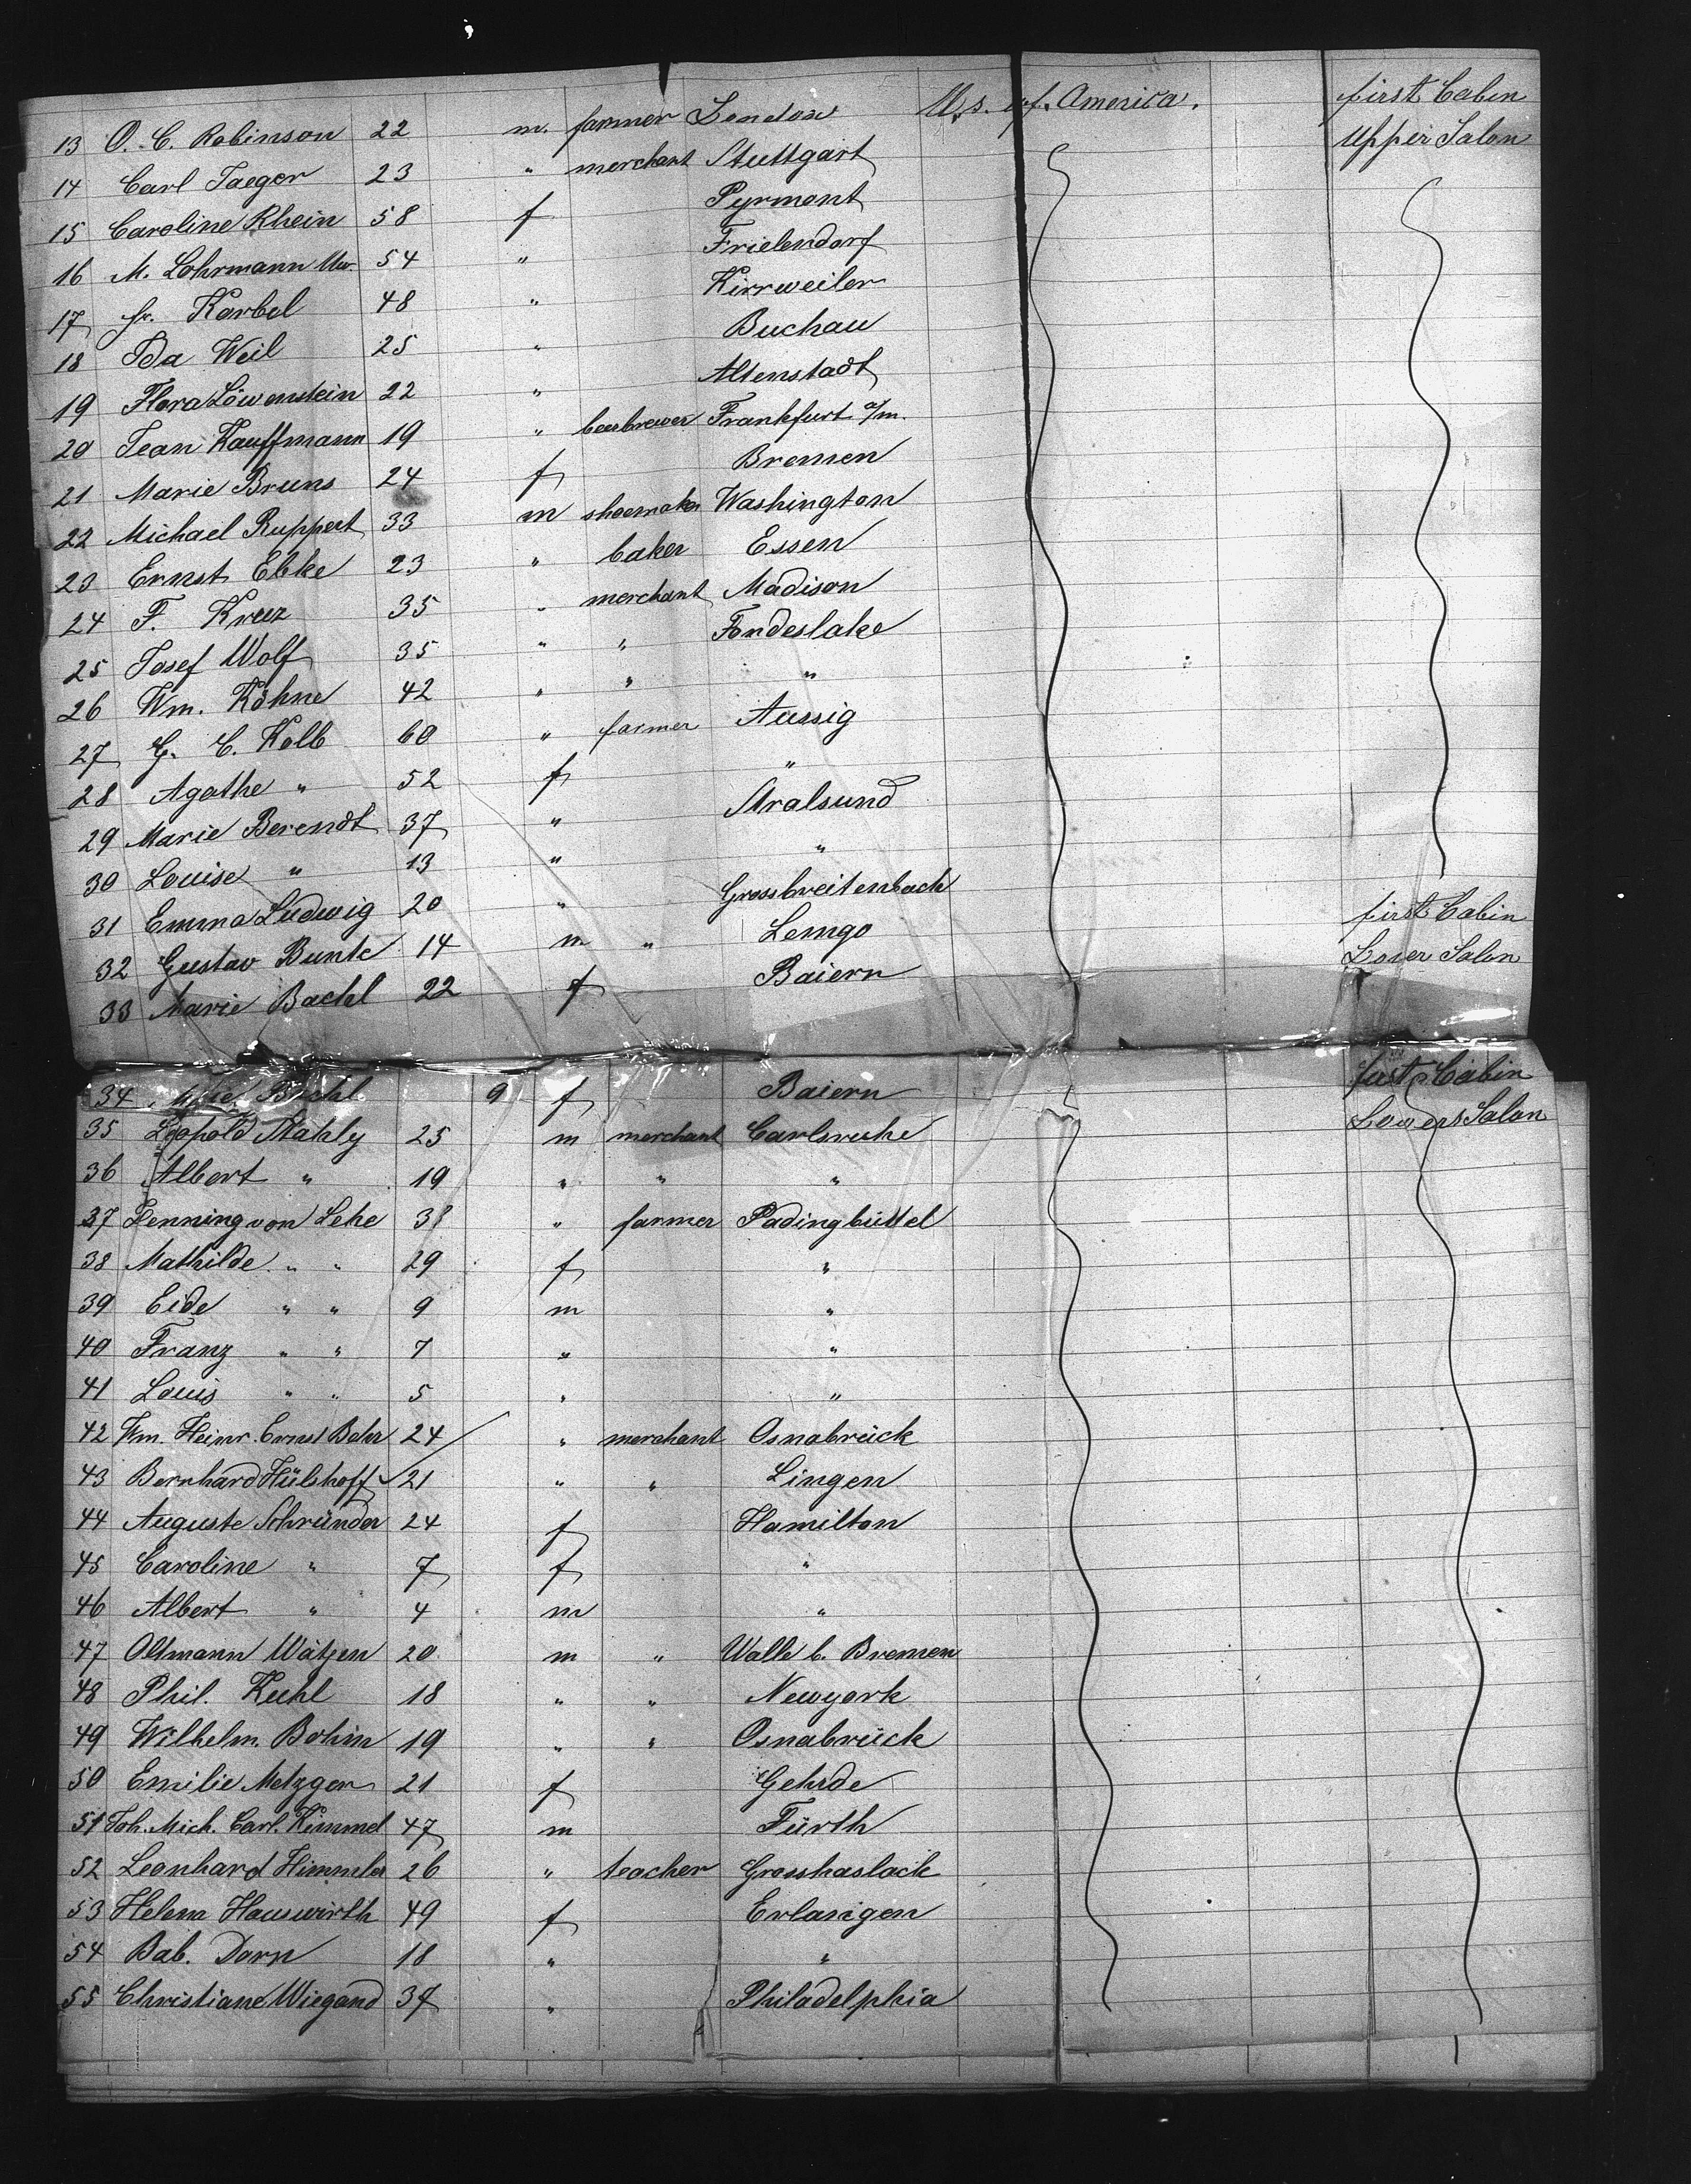 13 O. C. Robinson 22 m. farmer London U. S. of America. first Cabin
Upper Salon
14 Carl Jaeger 23 " merchant Stuttgart
15 Caroline Rhein 58 f Pyrmont
16 M. Lohrmann 54 " Frielendorf
17 fr. Karbel 48 " Kirrweiler
18 Ida Weil 25 " Buchau
19 Flora Löwenstein 22 " Altenstadt
20 Jean Kauffmann 19 " beerbrewer Frankfurt a/m.
21 Marie Bruns 24 f Bremen
22 Michael Ruppert 33 m shoemaker Washington
23 Ernst Ebke 23 " baker Essen
24 F. Kreuz 35 " merchant Madison
25 Josef Wolf 35 " " Fondeslake
26 Wm. Köhne 42 " " "
27 G. C. Kolb 60 " farmer Aussig
28 Agathe " 52 f "
29 Marie Berendt 37 " Stralsund
30 Louise " 13 " "
31 Emma Ludwig 20 " Grossbreitenbach
32 Gustav Bunte 14 m " Lemgo first Cabin
33 Marie Bachl 22 f Baiern Lower Salon
34 Bachl 9 f Baiern first Cabin
35 Leopold Stahly 25 m merchant Carlsruhe Lower Salon
36 Albert " 19 " " "
37 Henning von Lehe 38 " farmer Padingbüttel
38 Mathilde " " 29 f "
39 Eide " " 9 m "
40 Franz " " 7 " "
41 Louis " " 5 " "
42 Wm. Heinr. Ernst Behr 24 " merchant Osnabrück
43 Bernhard Hülshoff 21 " " Lingen
44 Auguste Schründer 24 f Hamilton
45 Caroline " 7 f "
46 Albert " 4 m "
47 Oltmann Wätjen 20 m " Walle b. Bremen
48 Phil. Kuhl 18 " " Newyork
49 Wilhelm Bohim 19 " " Osnabrück
50 Emilie Metzger 21 f Gehrde
51 Joh. Mich. Carl. Kimmel 47 m Fürth
52 Leonhard Himmler 26 " teacher Grosshaslach
53 Helena Hauswirth 49 f Erlangen
54 Bab. Dorn 18 " "
55 Christiane Wiegand 37 " Philadelphia